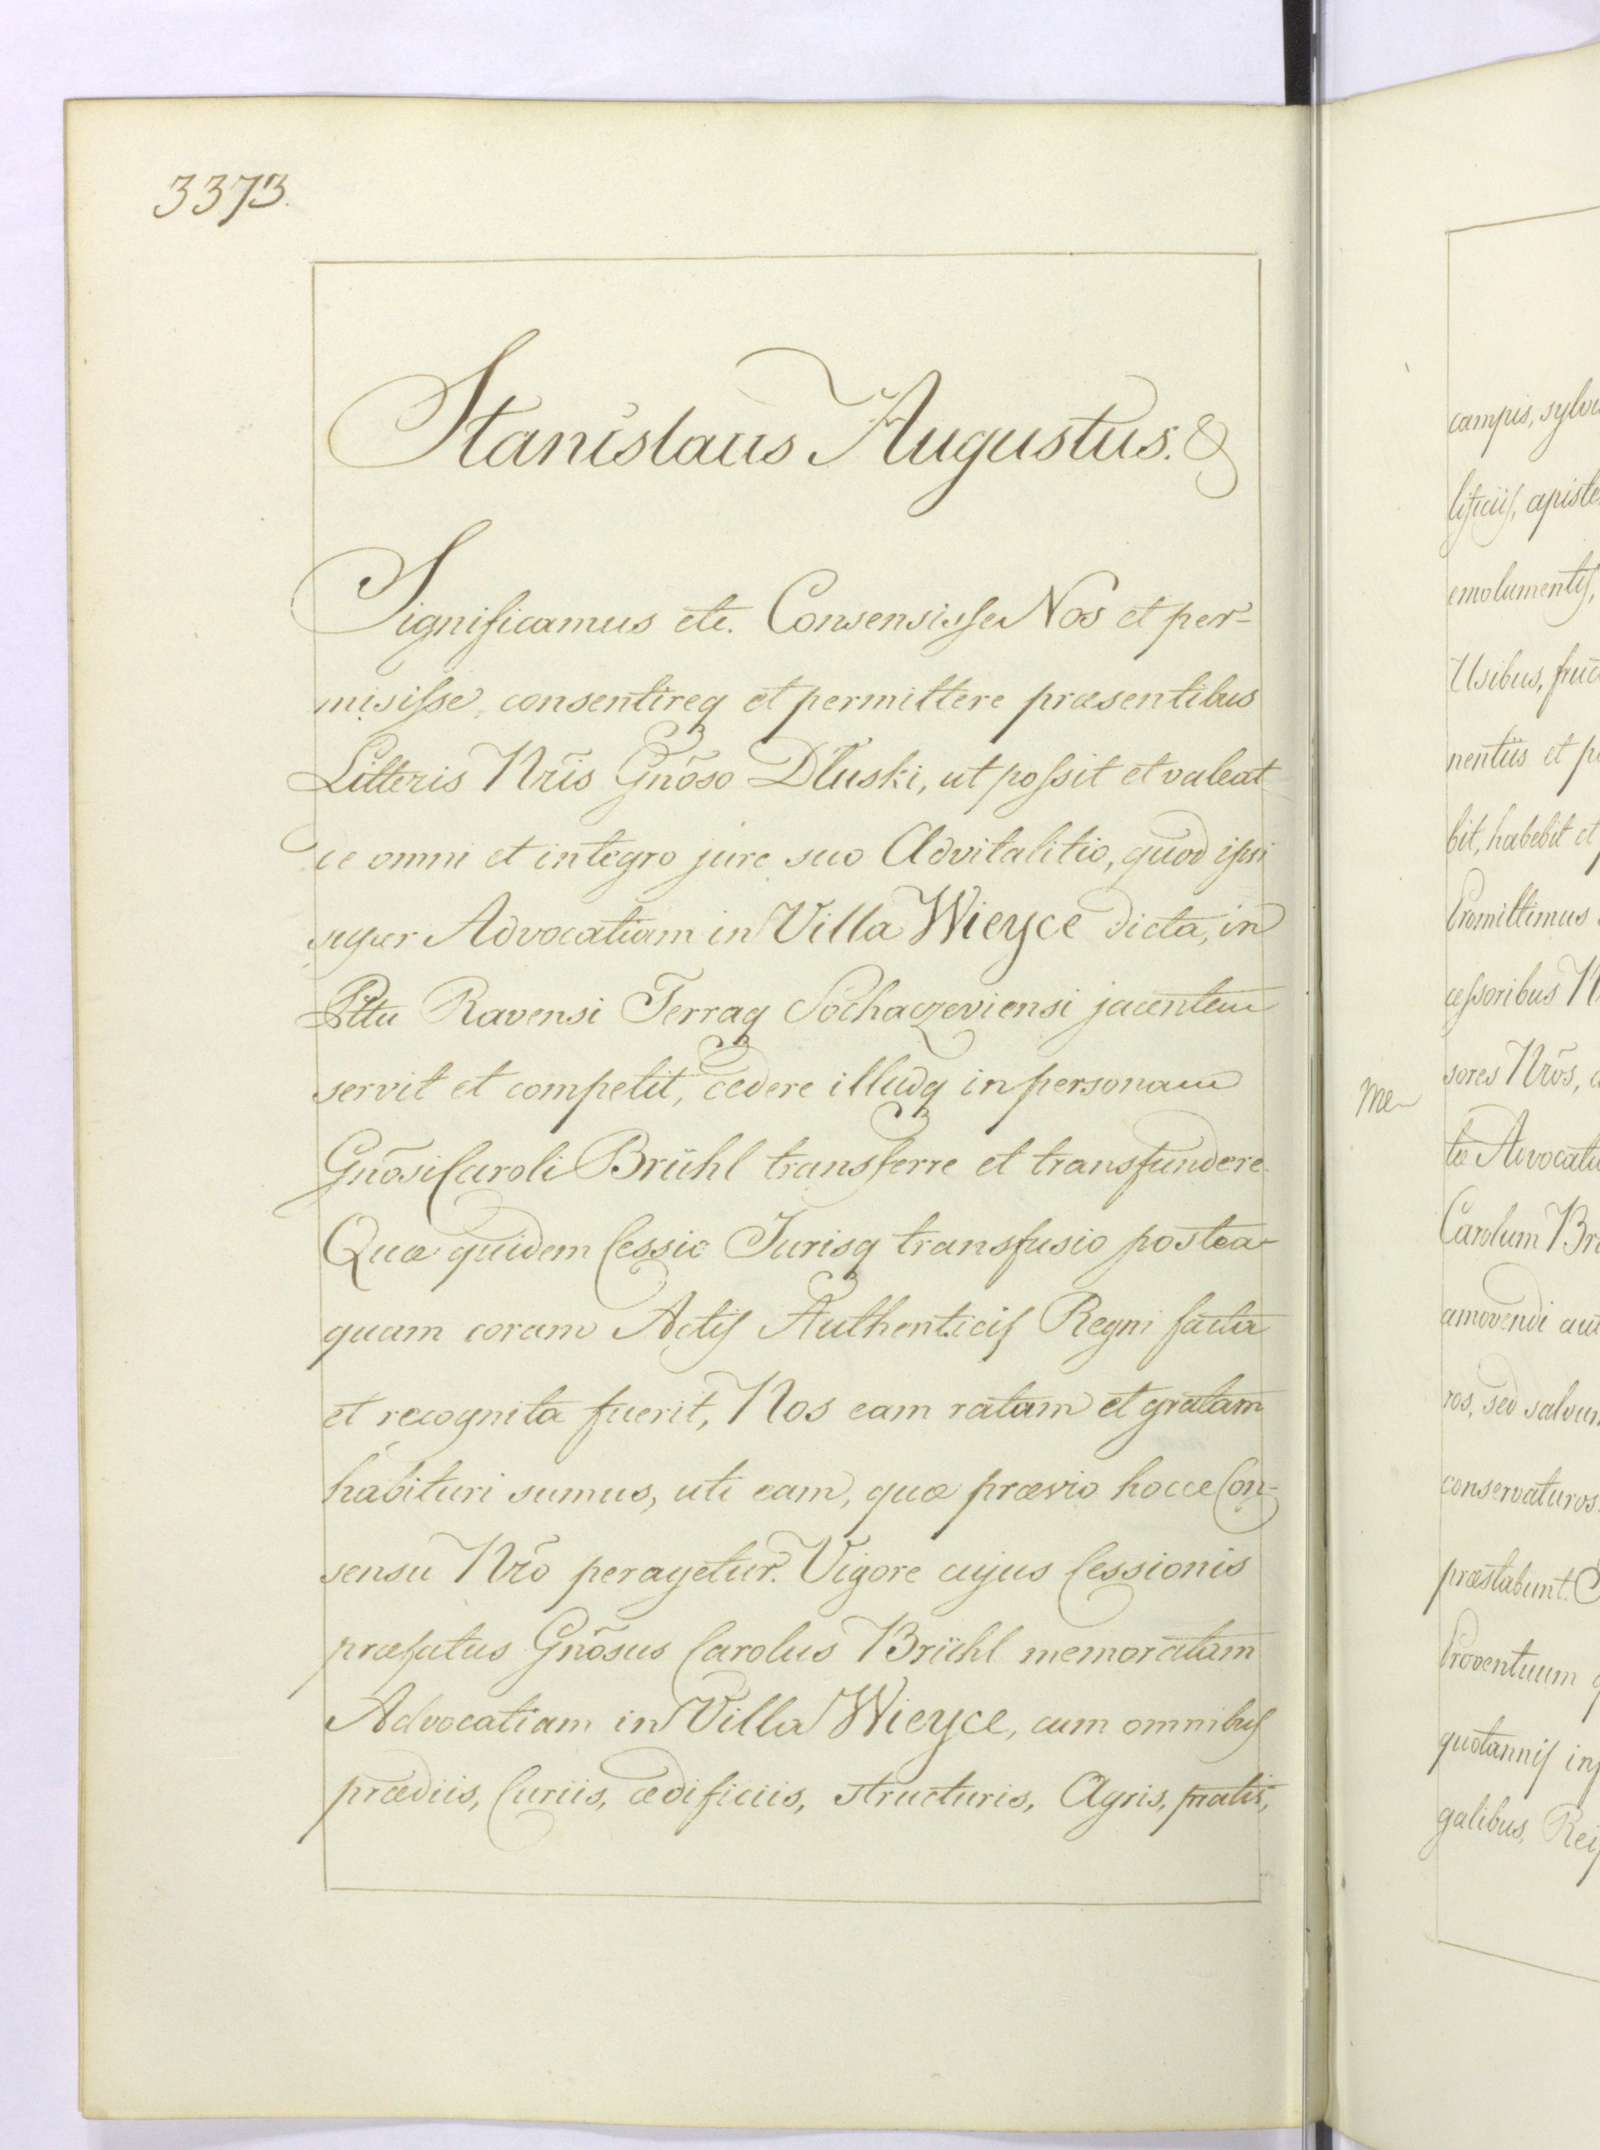 3373.
Stanislaus Augustus. &
Significamus etc. Consensisse Nos et per-
misisse, consentireq et permittere præsentibus
Litteris Nrīs Gnōso Dłuski, ut possit et valeat
ce omni et integro jure suo Advitalitio, quod ipsi
super Advocatiam in Villa Wieyce dicta, in
Pttu Ravensi Terraq Sochaczeviensi jacentem
servit et competit, cedere illudq in personam
Gnōsi Caroli Brühl transferre et transfundere.
Quæ quidem Cessio Jurisq transfusio postea-
quam coram Actis Authenticis Regni facta
et recognita fuerit, Nos eam ratam et gratam
habituri sumus, uti eam, quæ prævio hocce Con-
sensu Nrō peragetur. Vigore cujus Cessionis
præfatus Gnōsus Carolus Brühl memoratam
Advocatiam in Villa Wieyce, cum omnibus
prædiis, Curiis, ædificiis, structuris, Agris, pratis,
campis,
emolumentis,
Usibus,
nentiis et
bit, habebit et
Promittimus
cessoribus
sores Nrōs,
me
tæ
Carolum
amovendi
ros, sed
conservaturos
præstabunt.
Proventuum
quotannis
galibus,